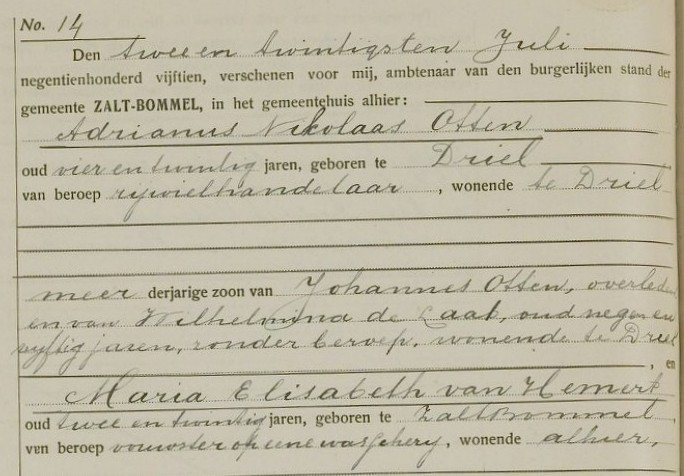 No. 14
Den twee en twintigsten Juli
negentienhonderd vijftien, verschenen voor mij, ambtenaar van den burgerlijken stand der
gemeente ZALT-BOMMEL, in het gemeentehuis alhier:
Adrianus Nikolaas Otten
oud vier en twintig jaren, geboren te Driel
van beroep rijwielhandelaar, wonende te Driel
meer derjarige zoon van Johannes Otten, overleden
en van Wilhelmina de Laat, oud negen en
vyftig jaren, zonder beroep, wonende te Driel
, en
Maria Elisabeth van Hemert
oud twee en twintig jaren, geboren te Zaltbommel,
van beroep op eene wasschery, wonende alhier,